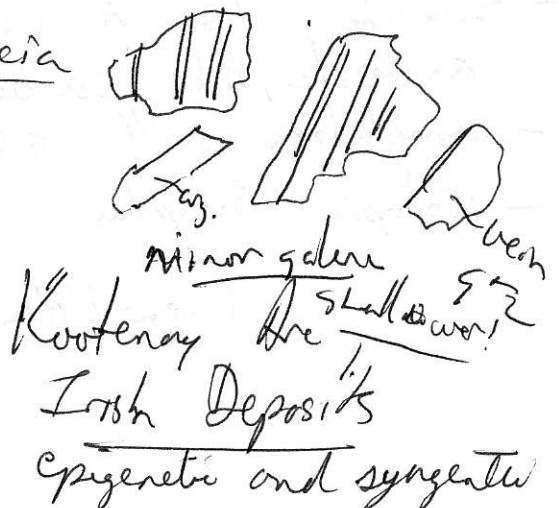 eia
qz.
vein
qz
minor galena
Kootenay Arc shallower!
Irish Deposits
epigenetic and syngenetic